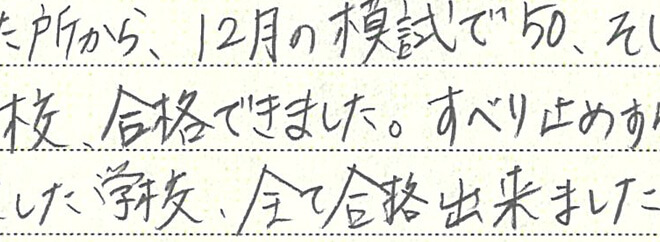 た所から、12月の模試で50、そし
校、合格できました。すべり止めす
した学校、全て合格出来ました